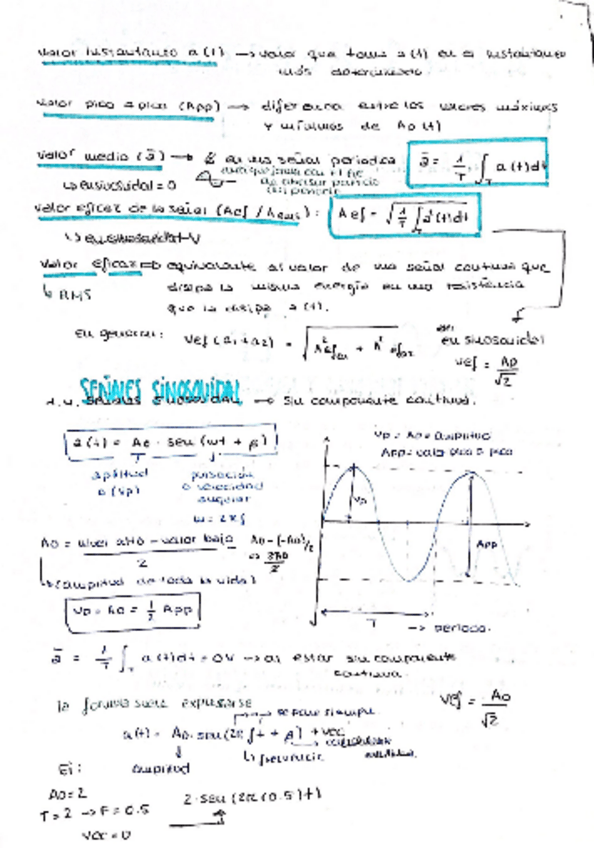 valor instantáneo a(t) → valor que toma a(t) en a instantáneo
más determinado.
valor pico a pico (App) → diferencia entre los valores máximos
y mínimos de Ao(t)
valor medio (ā) → en una señal periodica
ā = 1/T ∫T a(t)dt
↳ en sinosuidal = 0
valor eficaz de la señal (Aef / Arms):
Aef = √(1/T ∫T a²(t)dt)
valor eficaz ⇒ equivalente al valor de una señal continua que
↳ RMS
disipa la misma energía en una resistencia
que la disipa a(t).
en general: Vef (a1+a2) = √(A²ef a1 + A²ef a2)
en sinosuidal
Vef = Ap/√2
SEÑALES SINOSUIDAL
→ sin componente continua.
a(t) = Ao · sen(wt + β)
amplitud
o (Vp)
pulsación
o velocidad
angular
w = 2πf
Vp = Ao = amplitud
App = valor pico a pico
Vp
App
T → periodo.
Ao = nivel alto − valor bajo / 2
Ao − (−Ao)/2
⇒ 2Ao/2
↳ (amplitud de toda la vida)
Vp = Ao = 1/2 App
ā = 1/T ∫T a(t)dt = 0V → al estar sin componente
continua
la forma suele expresarse
se pone siempre
a(t) = Ao · sen(2πf t + β) + Vcc
↳ frecuencia
amplitud
Vef = Ao/√2
Ej:
Ao = 2
T = 2 → F = 0.5
Vcc = 0
2 · sen(2π(0.5)t)